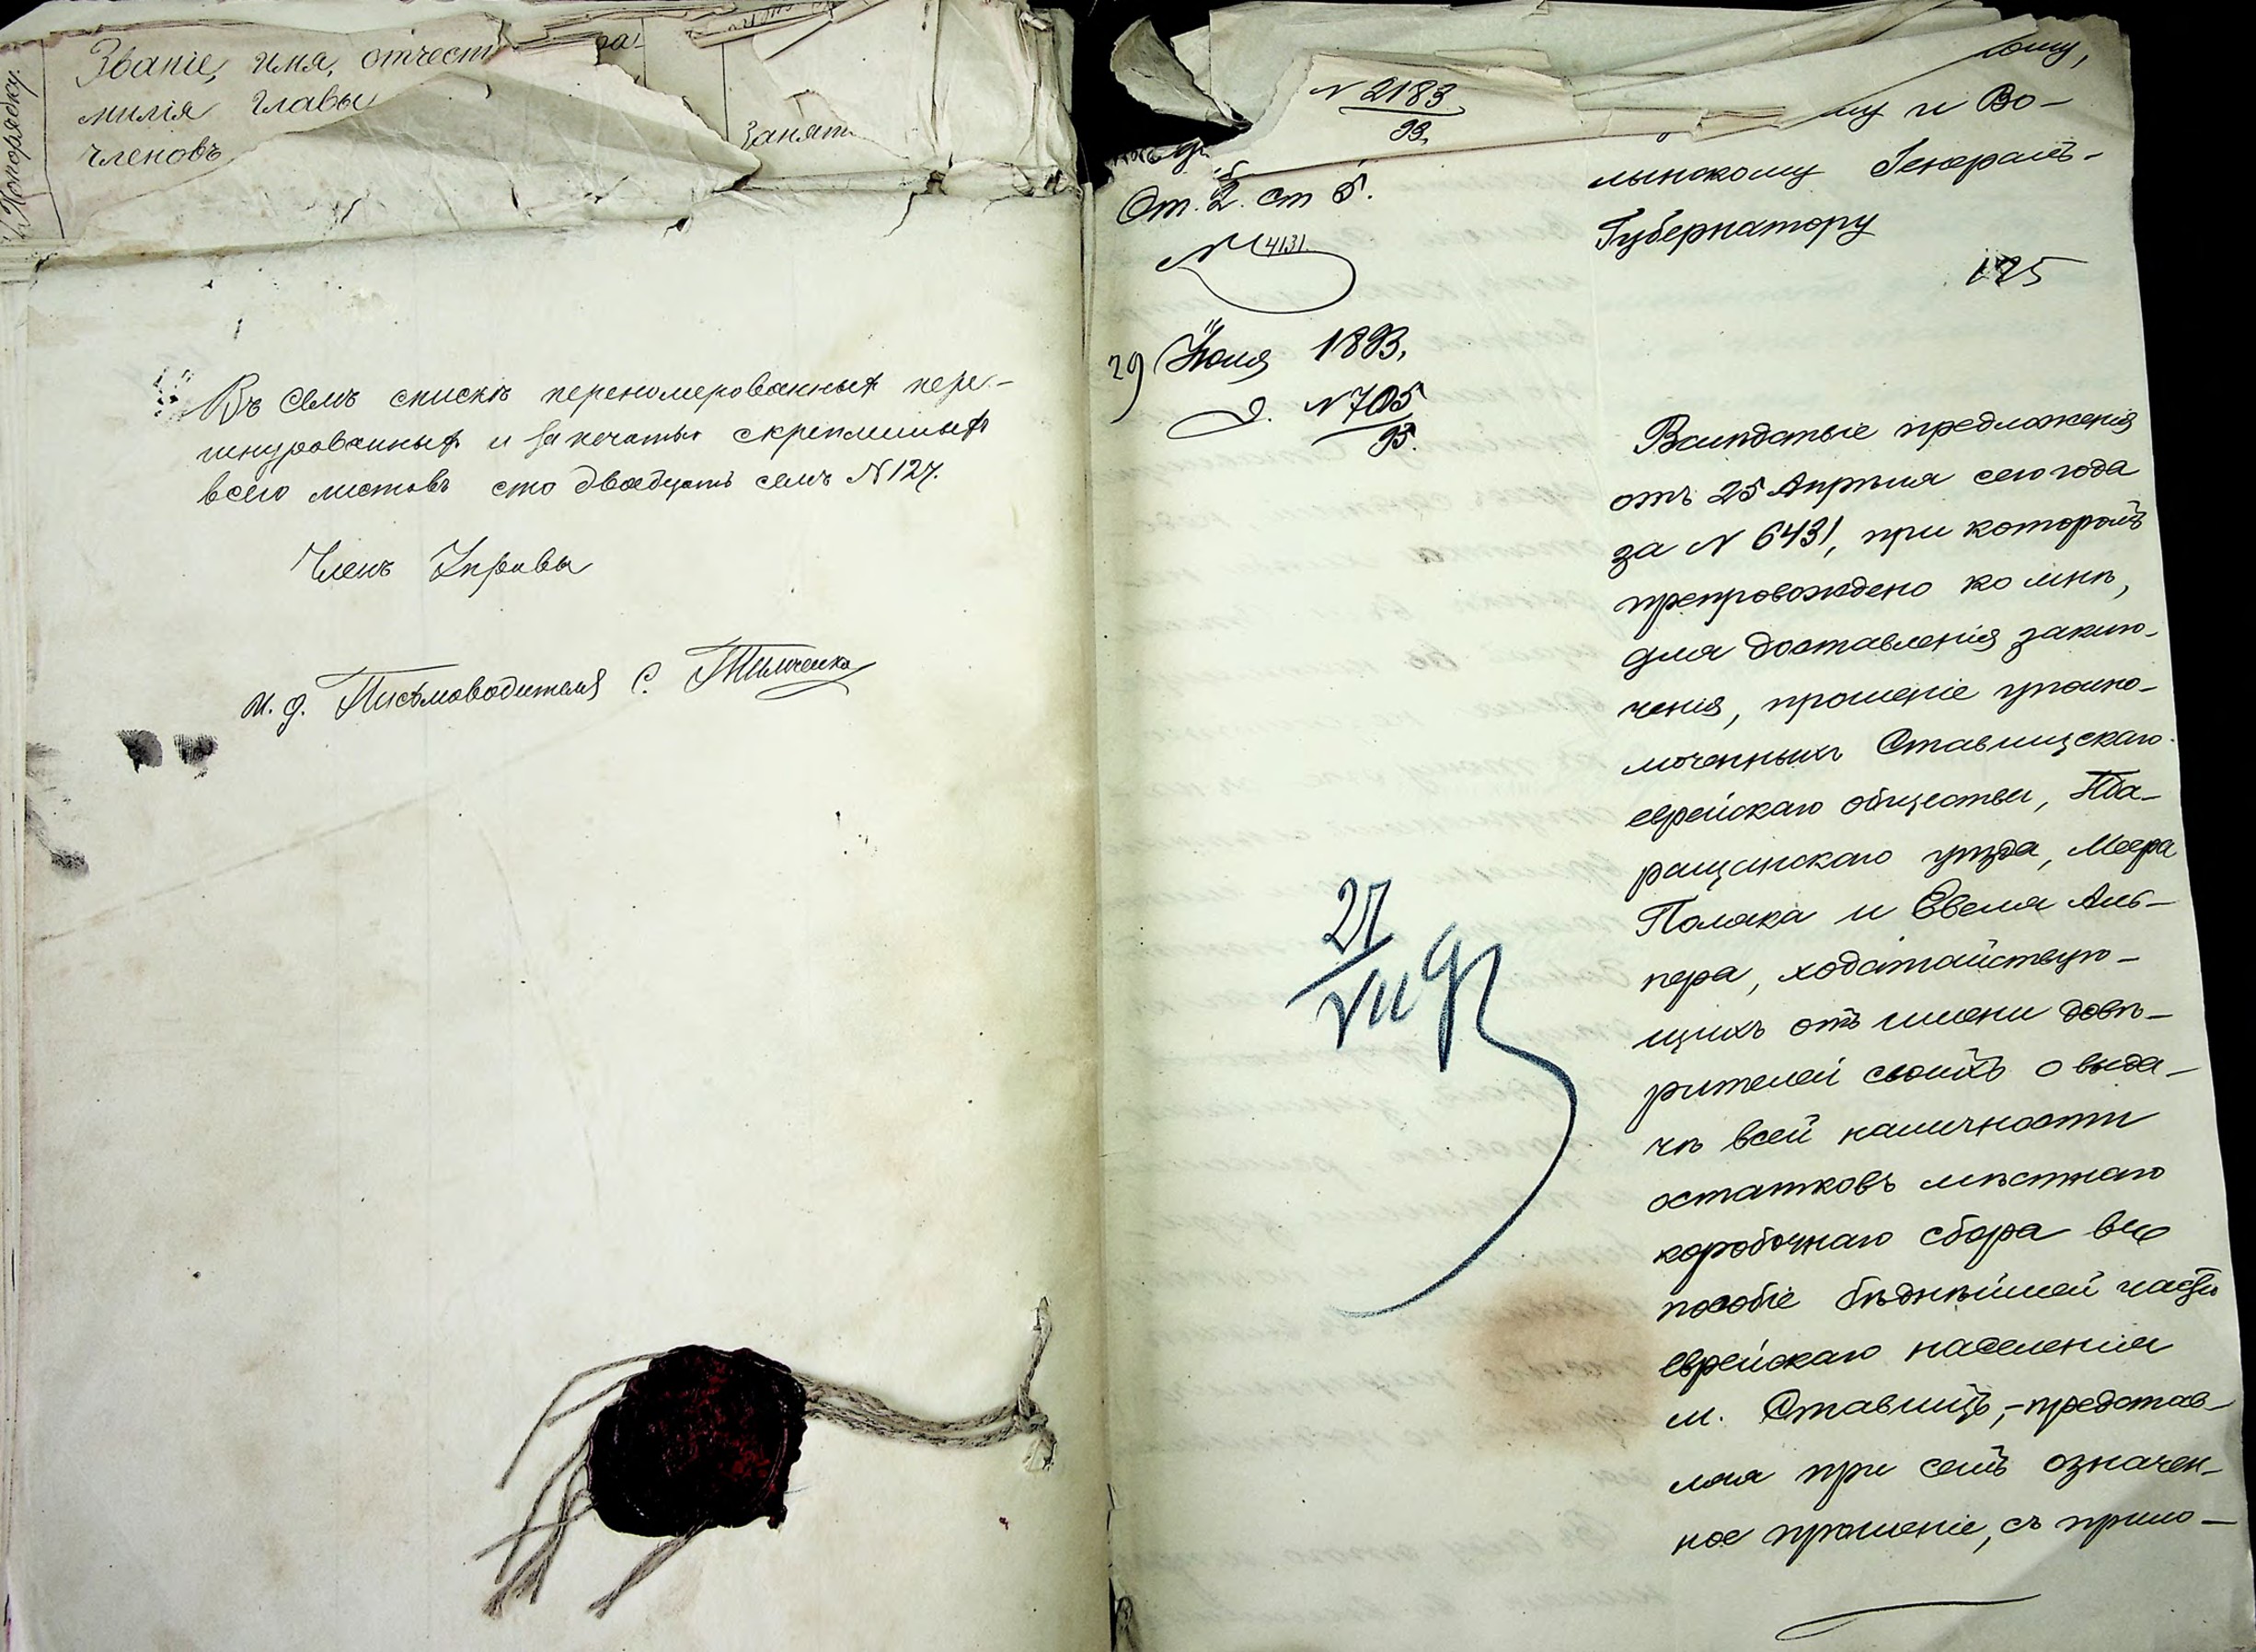 № Попорядку.
Званіе, имя, отчест
милія главы
членовъ
Занят
Въ семъ спискѣ переномерованныхъ пере-
шнурованныхъ и запечатью скрепленныхъ
всего листовъ сто двадцать семь N 127.
Членъ Управы
И. д. Письмоводителя С.
N 2183
93.
От. 2. ст 5.
N 4131.
29 Іюля 1893.
Д. N 705
93.
27
VII 93
ому,
му и Во-
лынскому Генералъ-
Губернатору
125
Вслѣдствіе предложенія
отъ 25 Апрѣля сего года
за N 6431, при которомъ
препровождено ко мнѣ,
для доставленія заклю-
ченія, прошеніе уполно-
моченныхъ Ставищскаго
еврейскаго общества, Тва-
ращанскаго уѣзда, Меера
Поляка и Евеля Аль-
пера, ходатайствую-
щихъ отъ имени довѣ-
рителей своихъ о выда-
чѣ всей наличности
остатковъ мѣстнаго
коробочнаго сбора въ
пособіе бѣднѣйшей части
еврейскаго населенія
м. Ставищъ,-представ-
ляя при семъ означен-
ное прошеніе, съ прило-